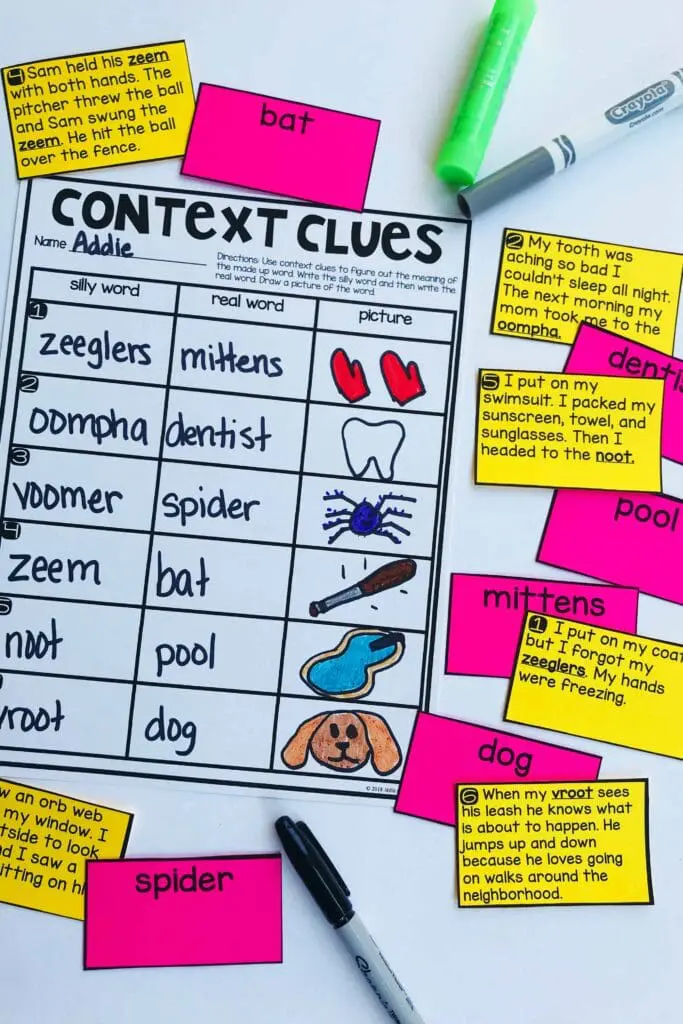 4 Sam held his zeem
with both hands. The
pitcher threw the ball
and Sam swung the
zeem. He hit the ball
over the fence.
bat
Crayola
Crayola.com
CONTEXT CLUES
Name Addie
Directions: Use context clues to figure out the meaning of
the made up word. Write the silly word and then write the
real word. Draw a picture of the word.
silly word real word picture
1 zeeglers mittens
2 oompha dentist
3 voomer spider
4 zeem bat
5 noot pool
vroot dog
© 2018
2 My tooth was
aching so bad I
couldn't sleep all night.
The next morning my
mom took me to the
oompha.
5 I put on my
swimsuit. I packed my
sunscreen, towel, and
sunglasses. Then I
headed to the noot.
pool
mittens
1 I put on my coat
but I forgot my
zeeglers. My hands
were freezing.
dog
6 When my vroot sees
his leash he knows what
is about to happen. He
jumps up and down
because he loves going
on walks around the
neighborhood.
an orb web
my window. I
to look
I saw a
on
spider
Sharpie